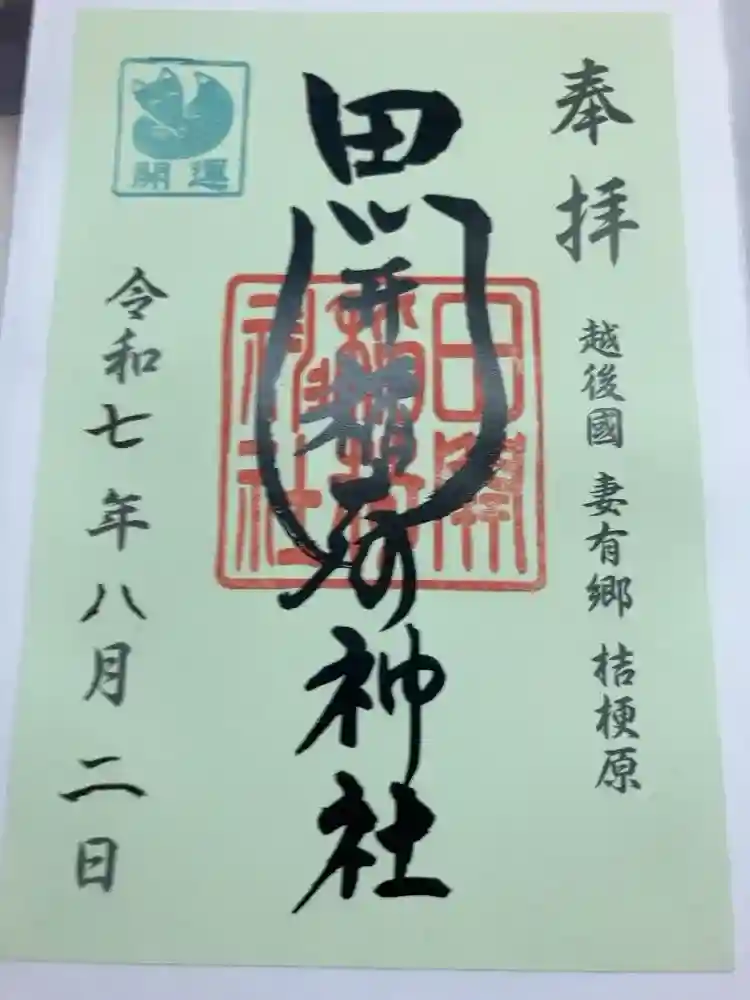 奉拝
越後國 妻有郷 桔梗原
田開稲荷神社
田開稲荷神社
開運
令和七年八月二日